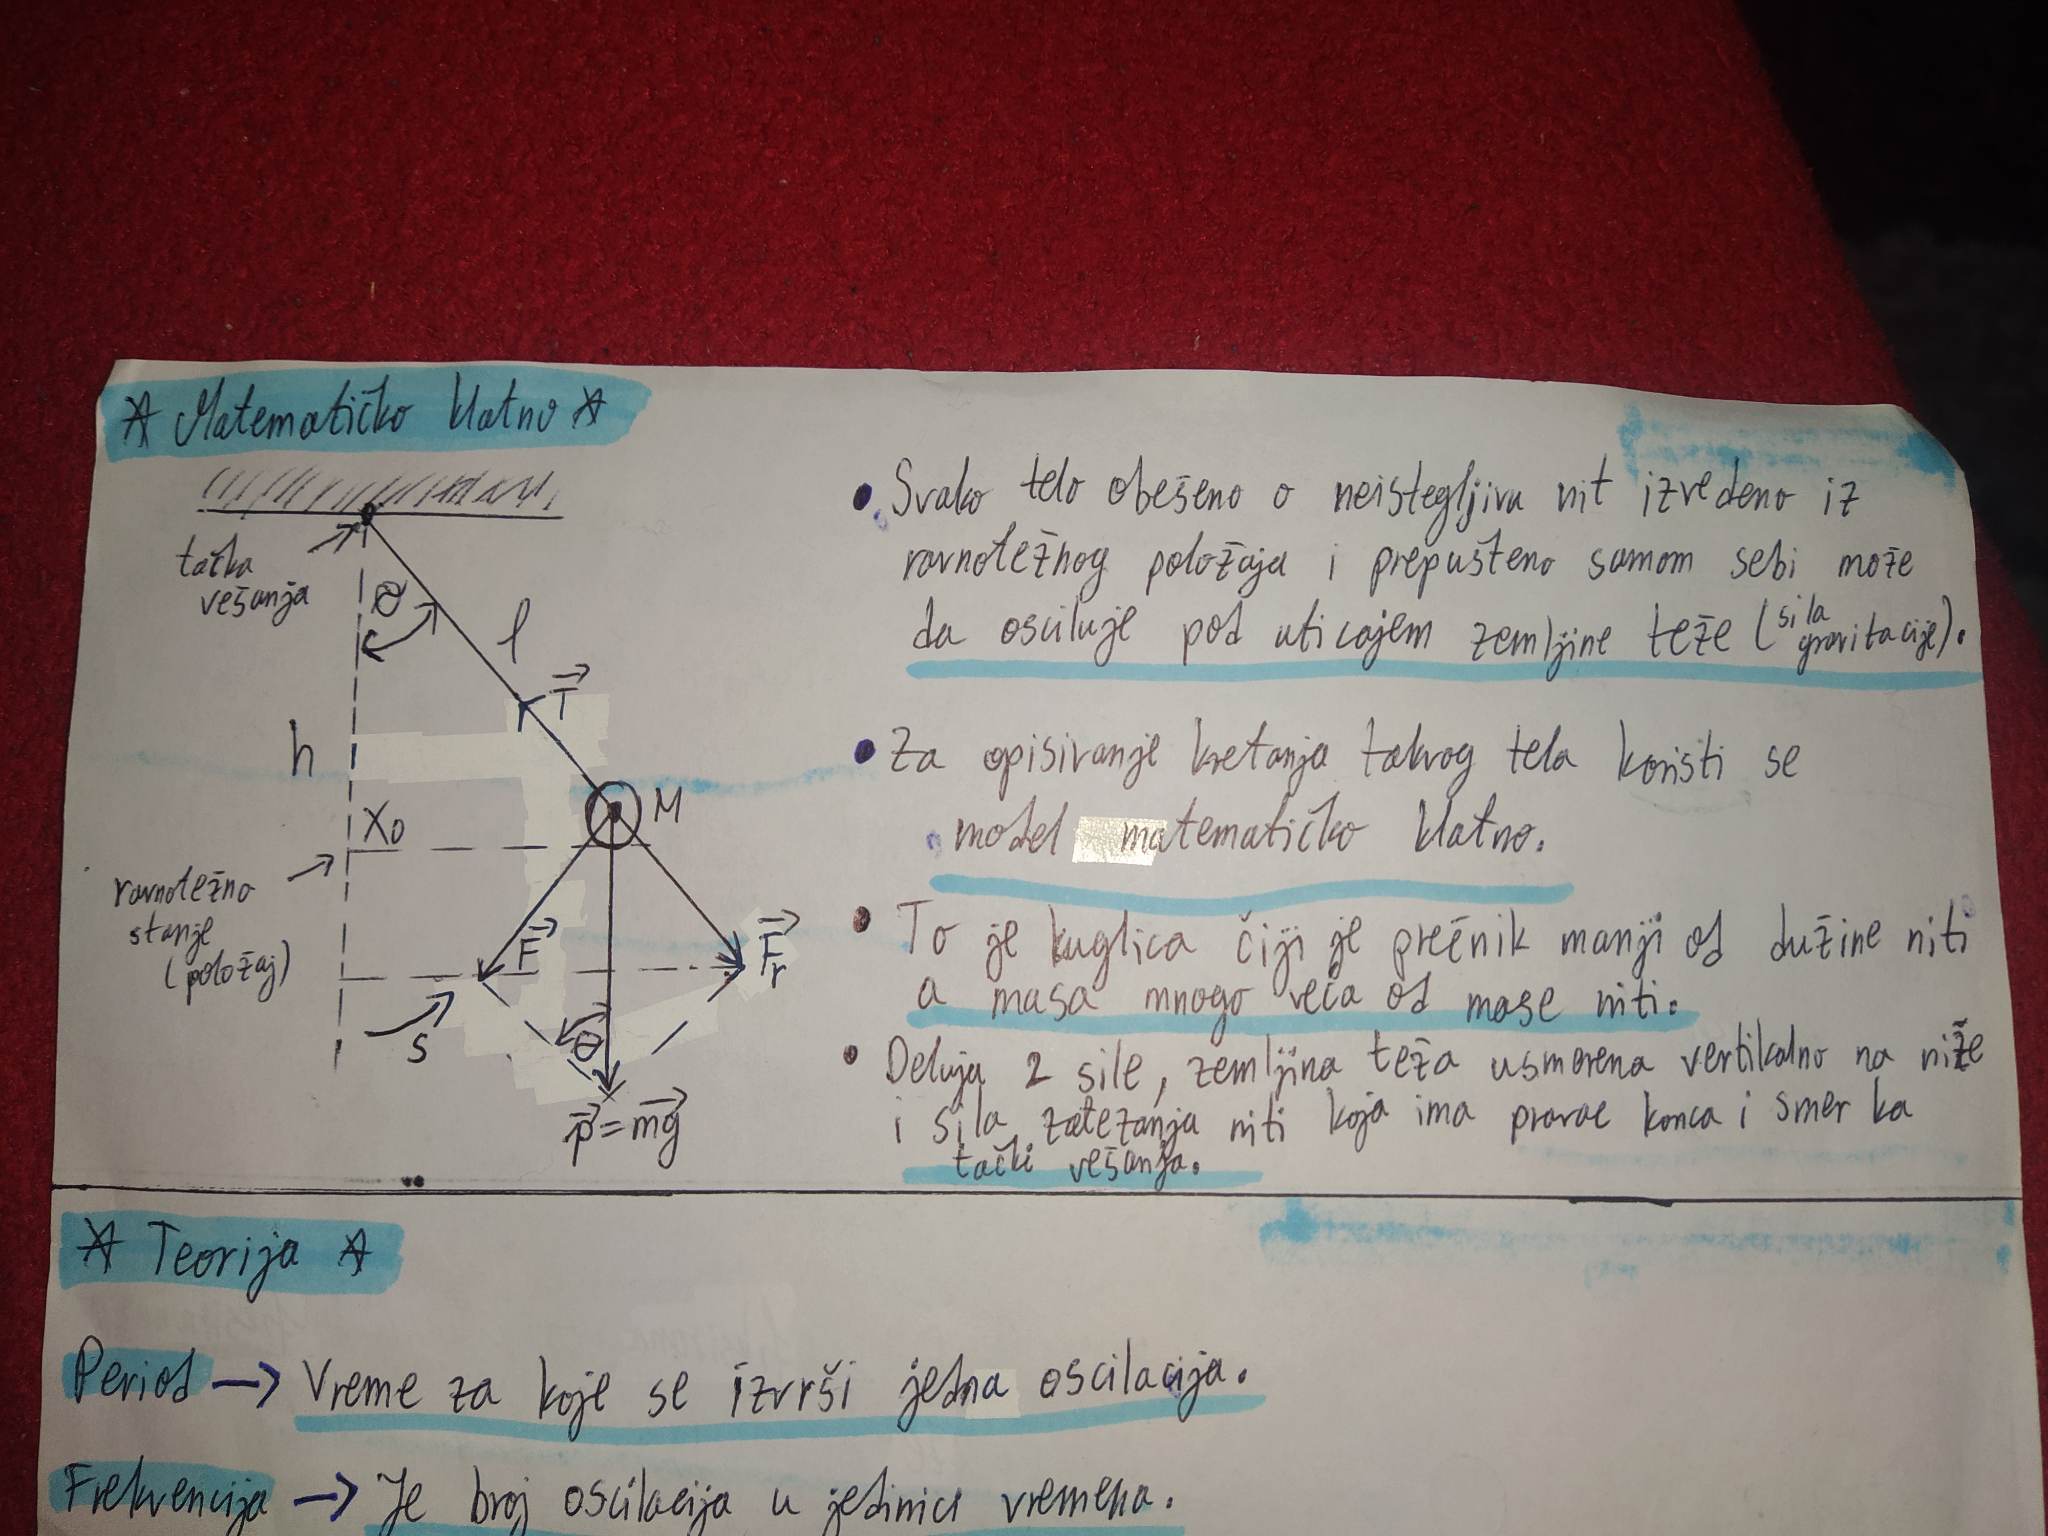 ☆ Matematičko klatno ☆
tačka
vešanja
θ
l
T
h
M
X0
ravnotežno
stanje
(položaj)
F
Fr
s
θ
p=mg
• Svako telo obešeno o neistegljivu nit izvedeno iz
ravnotežnog položaja i prepušteno samom sebi može
da osciluje pod uticajem zemljine teže (sila gravitacije).
• Za opisivanje kretanja takvog tela koristi se
model matematičko klatno.
• To je kuglica čiji je prečnik manji od dužine niti
a masa mnogo veća od mase niti.
• Deluju 2 sile, zemljina teža usmerena vertikalno na niže
i sila zatezanja niti koja ima pravac konca i smer ka
tački vešanja.
☆ Teorija ☆
Period → Vreme za koje se izvrši jedna oscilacija.
Frekvencija → Je broj oscilacija u jedinici vremena.